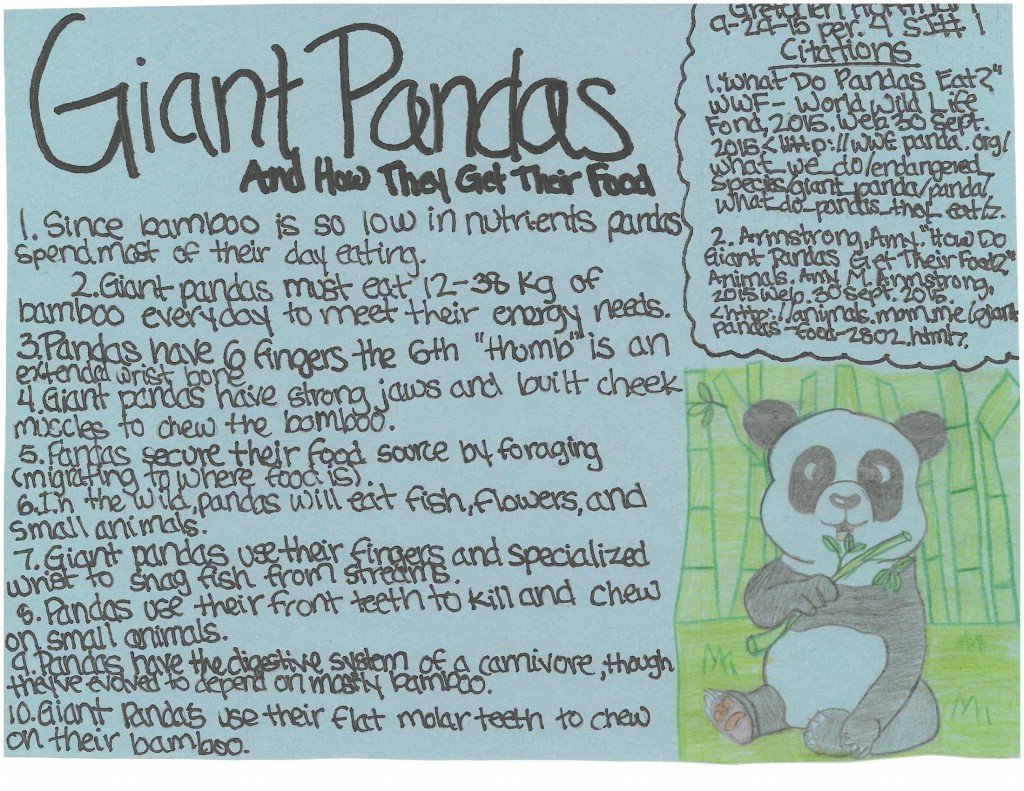 Giant Pandas
And How They Get Their Food
1. Since bamboo is so low in nutrients pandas
spend most of their day eating.
2. Giant pandas must eat 12-38 Kg of
bamboo everyday to meet their energy needs.
3. Pandas have 6 fingers the 6th "thumb" is an
extended wrist bone
4. Giant pandas have strong jaws and built cheek
muscles to chew the bamboo.
5. Pandas secure their food source by foraging
(migrating to where food is).
6. In the wild, pandas will eat fish, flowers, and
small animals.
7. Giant pandas use their fingers and specialized
wrist to snag fish from streams.
8. Pandas use their front teeth to kill and chew
on small animals.
9. Pandas have the digestive system of a carnivore, though
they've evolved to depend on mostly bamboo.
10. Giant Panda's use their flat molar teeth to chew
on their bamboo.
Gretchen
9-29-15 per. 4 SJ# 1
Citations
1. "What Do Pandas Eat?"
WWF - World Wild Life
Fond, 2015. Web. 30 Sept.
2015. <http://wwf.panda.org/
what_we_do/endangered_
species/giant_panda/panda/
what_do_pandas_they_eat/>.
2. Armstrong, Amy. "How Do
Giant Pandas Get Their Food?"
Animals. Amy M. Armstrong,
2015 Web. 30 Sept. 2015.
<http://animals.mom.me/giant
pandas-food-2802.html>.